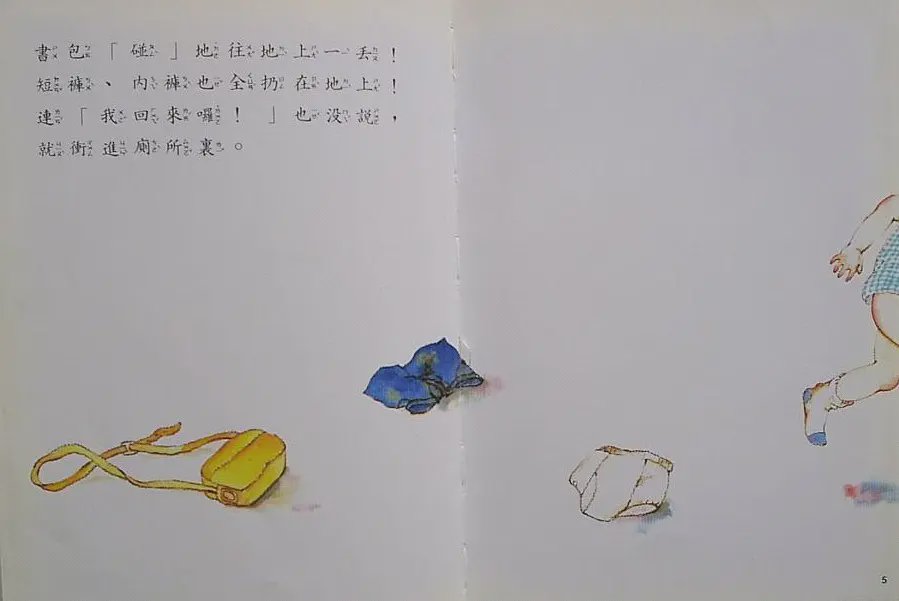 書包「碰」地往地上一丟！
短褲、內褲也全扔在地上！
連「我回來囉！」也没說，
就衝進廁所裏。
5